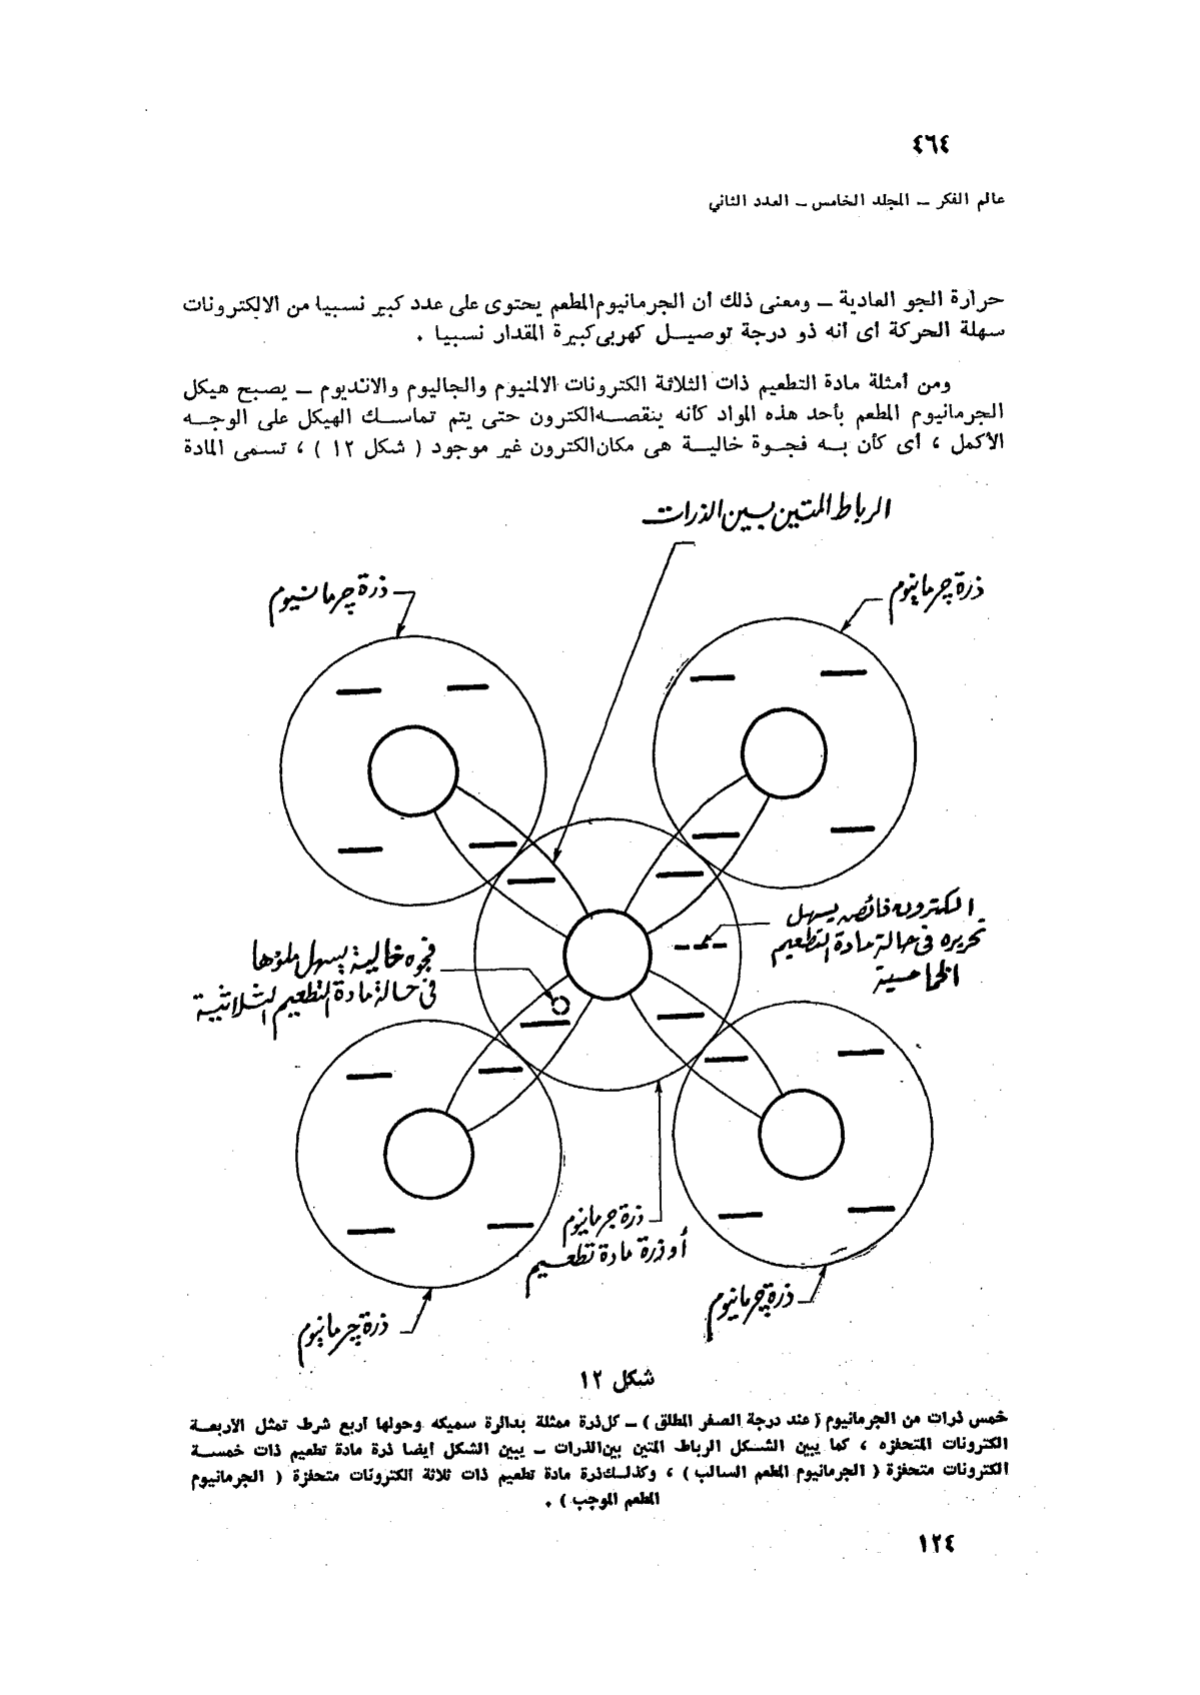 ٤٦٤
عالم الفكر ـ المجلد الخامس ـ العدد الثاني
حرارة الجو العادية ـ ومعنى ذلك أن الجرمانيوم المطعم يحتوى على عدد كبير نسبيا من الالكترونات
سهلة الحركة أى أنه ذو درجة توصيل كهربى كبيرة المقدار نسبيا .
ومن أمثلة مادة التطعيم ذات الثلاثة الكترونات الالمنيوم والجاليوم والانديوم ـ يصبح هيكل
الجرمانيوم المطعم بأحد هذه المواد كأنه ينقصه الكترون حتى يتم تماسك الهيكل على الوجه
الأكمل ، أى كأن به فجوة خالية هى مكان الكترون غير موجود ( شكل ١٢ ) ، تسمى المادة
الرباط المتين بين الذرات
ذرة جرمانيوم
ذرة جرمانيوم
الكترون فائض يسهل
تحريره فى حالة مادة التطعيم
الخماسية
فجوه خالية يسهل ملؤها
فى حالة مادة التطعيم الثلاثية
ذرة جرمانيوم
أو ذرة مادة تطعيم
ذرة جرمانيوم
ذرة جرمانيوم
شكل ١٢
خمس ذرات من الجرمانيوم ( عند درجة الصفر المطلق ) ـ كل ذرة ممثلة بدائرة سميكه وحولها أربع شرط تمثل الأربعة
الكترونات المتحفزه ، كما يبين الشكل الرباط المتين بين الذرات ـ يبين الشكل ايضا ذرة مادة تطعيم ذات خمسة
الكترونات متحفزة ( الجرمانيوم المطعم السالب ) ، وكذلك ذرة مادة تطعيم ذات ثلاثة الكترونات متحفزة ( الجرمانيوم
المطعم الموجب ) .
١٢٤